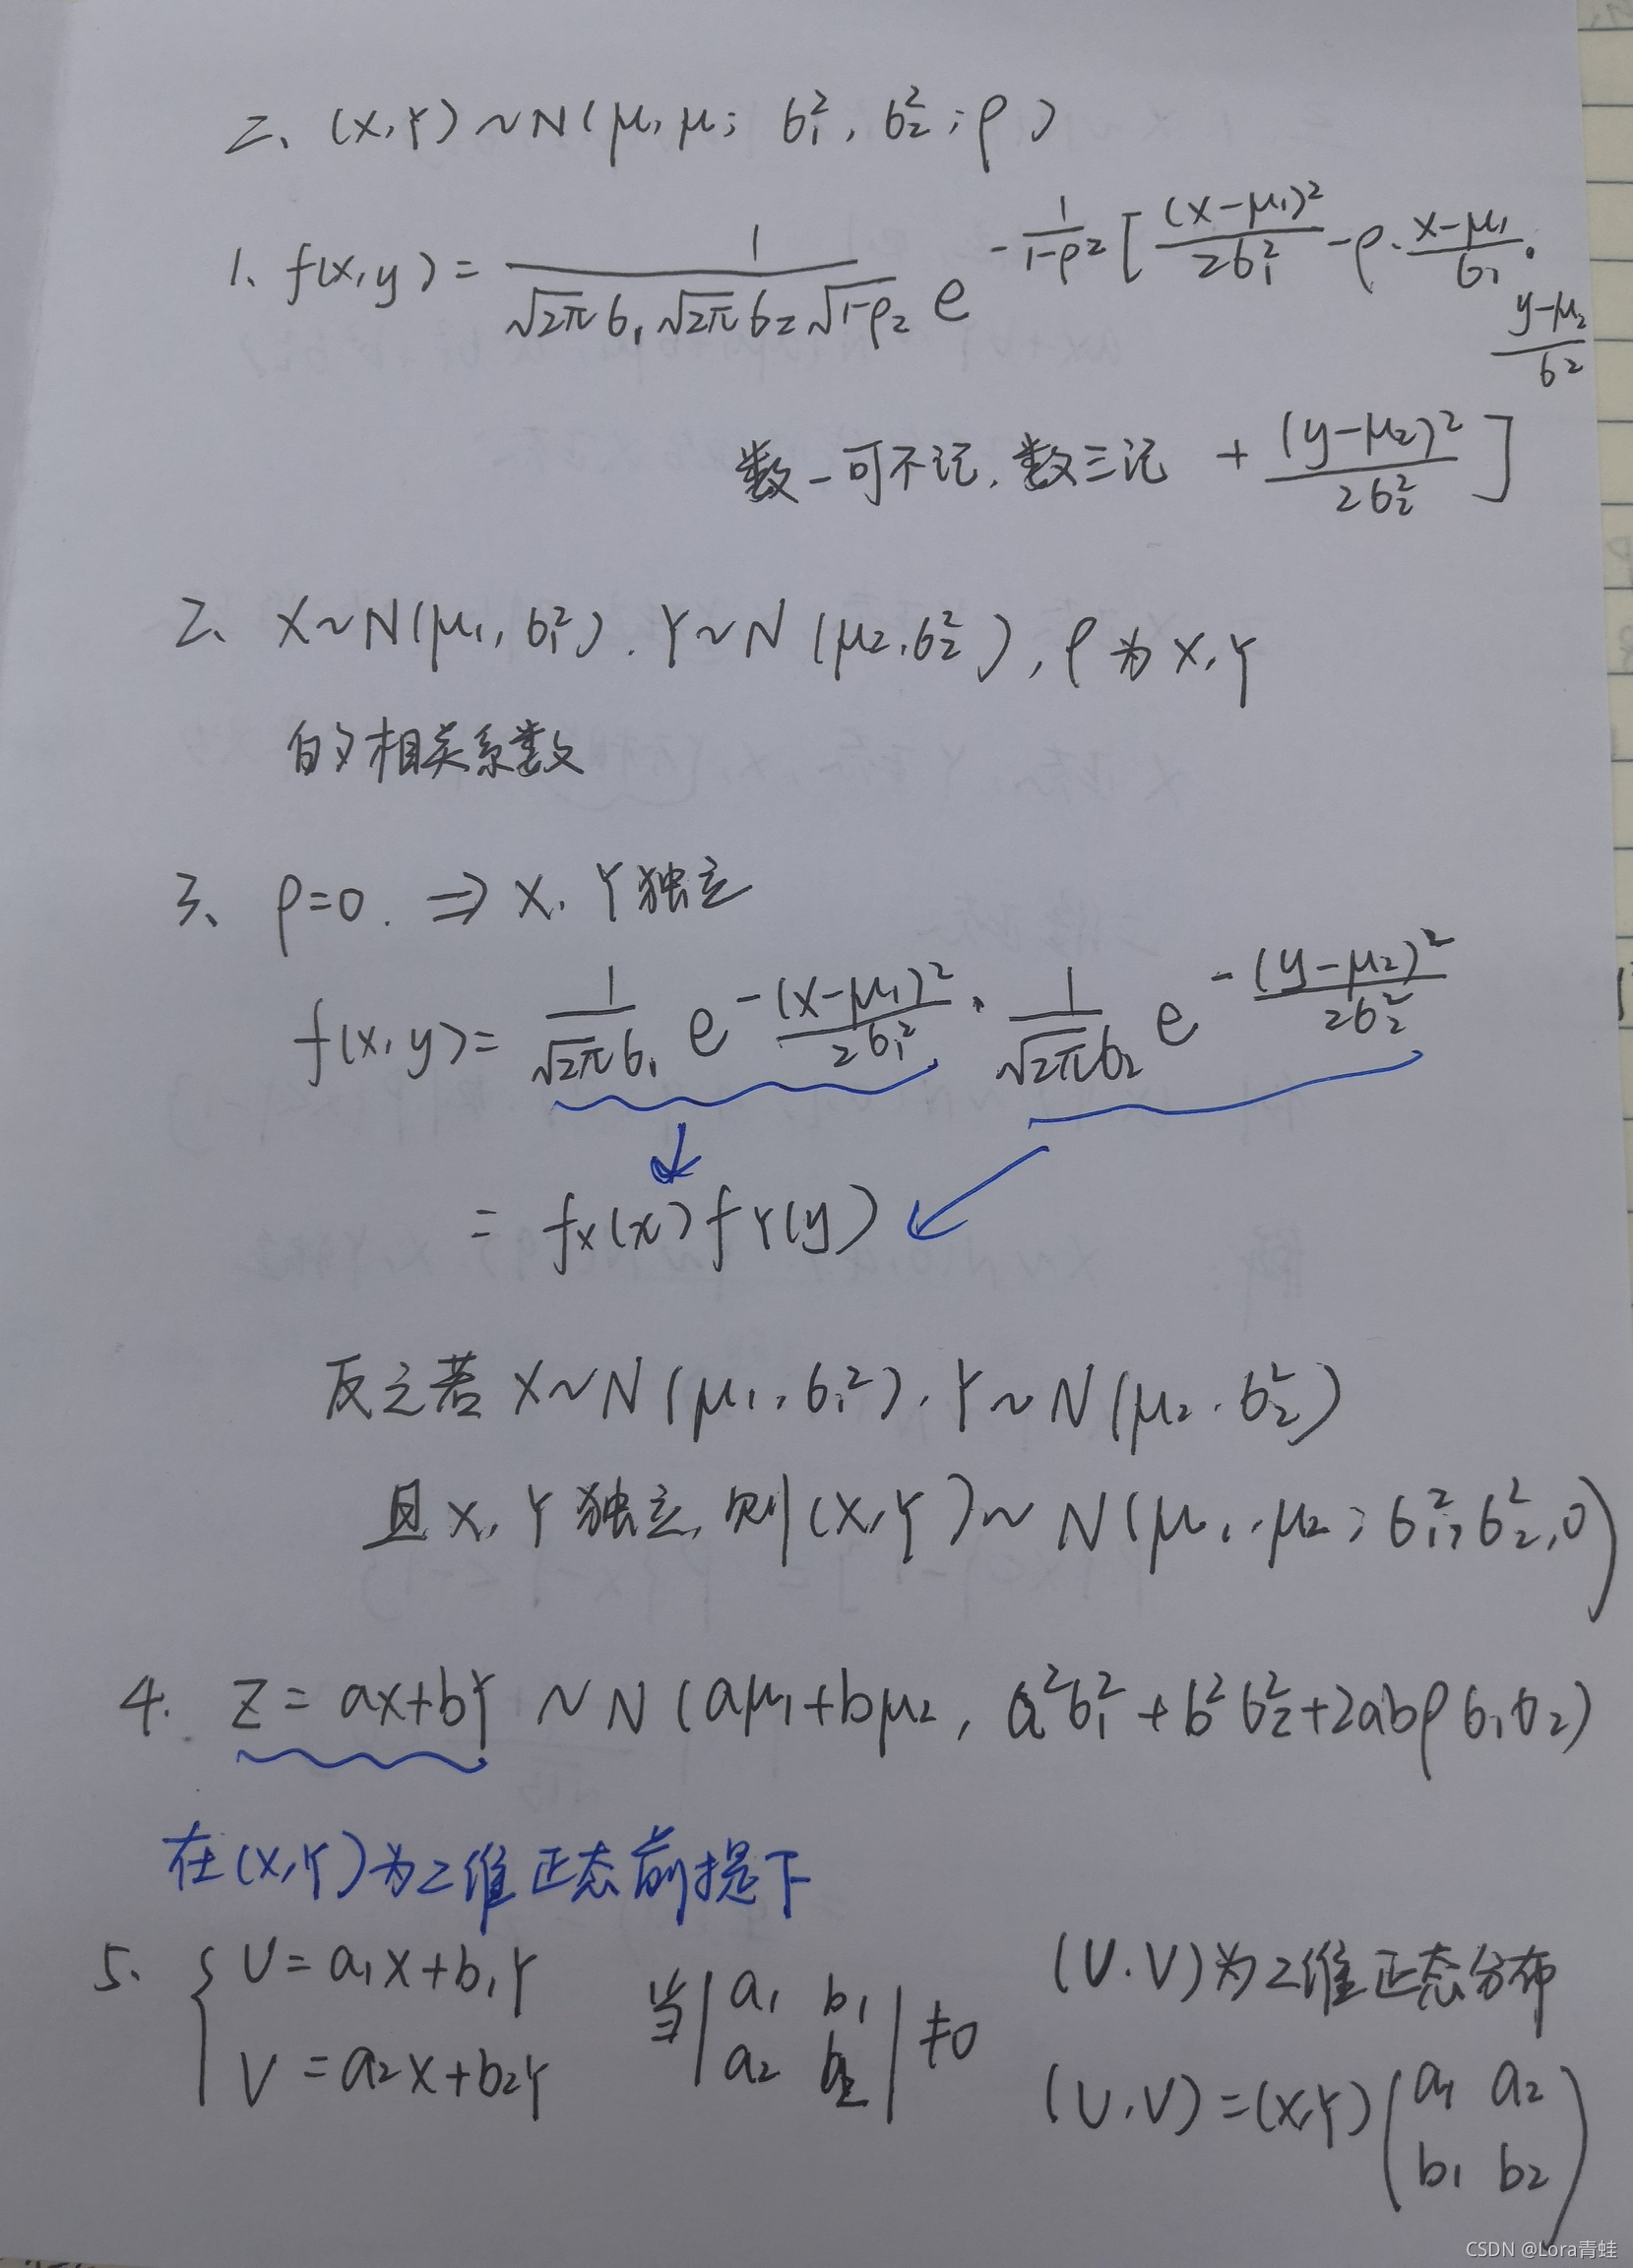 二、(X,Y)~N(μ,μ; σ₁²,σ₂²;ρ)
1、f(x,y)= 1/(√2π σ₁ √2π σ₂ √1-ρ₂) e^{-1/(1-ρ²) [(x-μ₁)²/2σ₁² -ρ·(x-μ₁)/σ₁·
(y-μ₂)/σ₂
数一可不记,数三记 + (y-μ₂)²/2σ₂² ]
2、X~N(μ₁,σ₁²).Y~N(μ₂,σ₂²),ρ为X,Y
的相关系数
3、ρ=0. ⇒ X,Y独立
f(x,y)= 1/(√2π σ₁) e^{-(x-μ₁)²/2σ₁²} · 1/(√2π σ₂) e^{-(y-μ₂)²/2σ₂²}
= fx(x)fY(y)
反之若X~N(μ₁,σ₁²),Y~N(μ₂,σ₂²)
且X,Y独立,则(X,Y)~N(μ₁,μ₂;σ₁²,σ₂²,0)
4. Z=aX+bY ~N(aμ₁+bμ₂, a²σ₁²+b²σ₂²+2abρσ₁σ₂)
在(X,Y)为二维正态前提下
5、{ U=a₁X+b₁Y 当|a₁ b₁ (U,V)为二维正态分布
V=a₂X+b₂Y a₂ b₂|≠0
(U,V)=(X,Y)(a₁ a₂
b₁ b₂)
CSDN @Lora青蛙